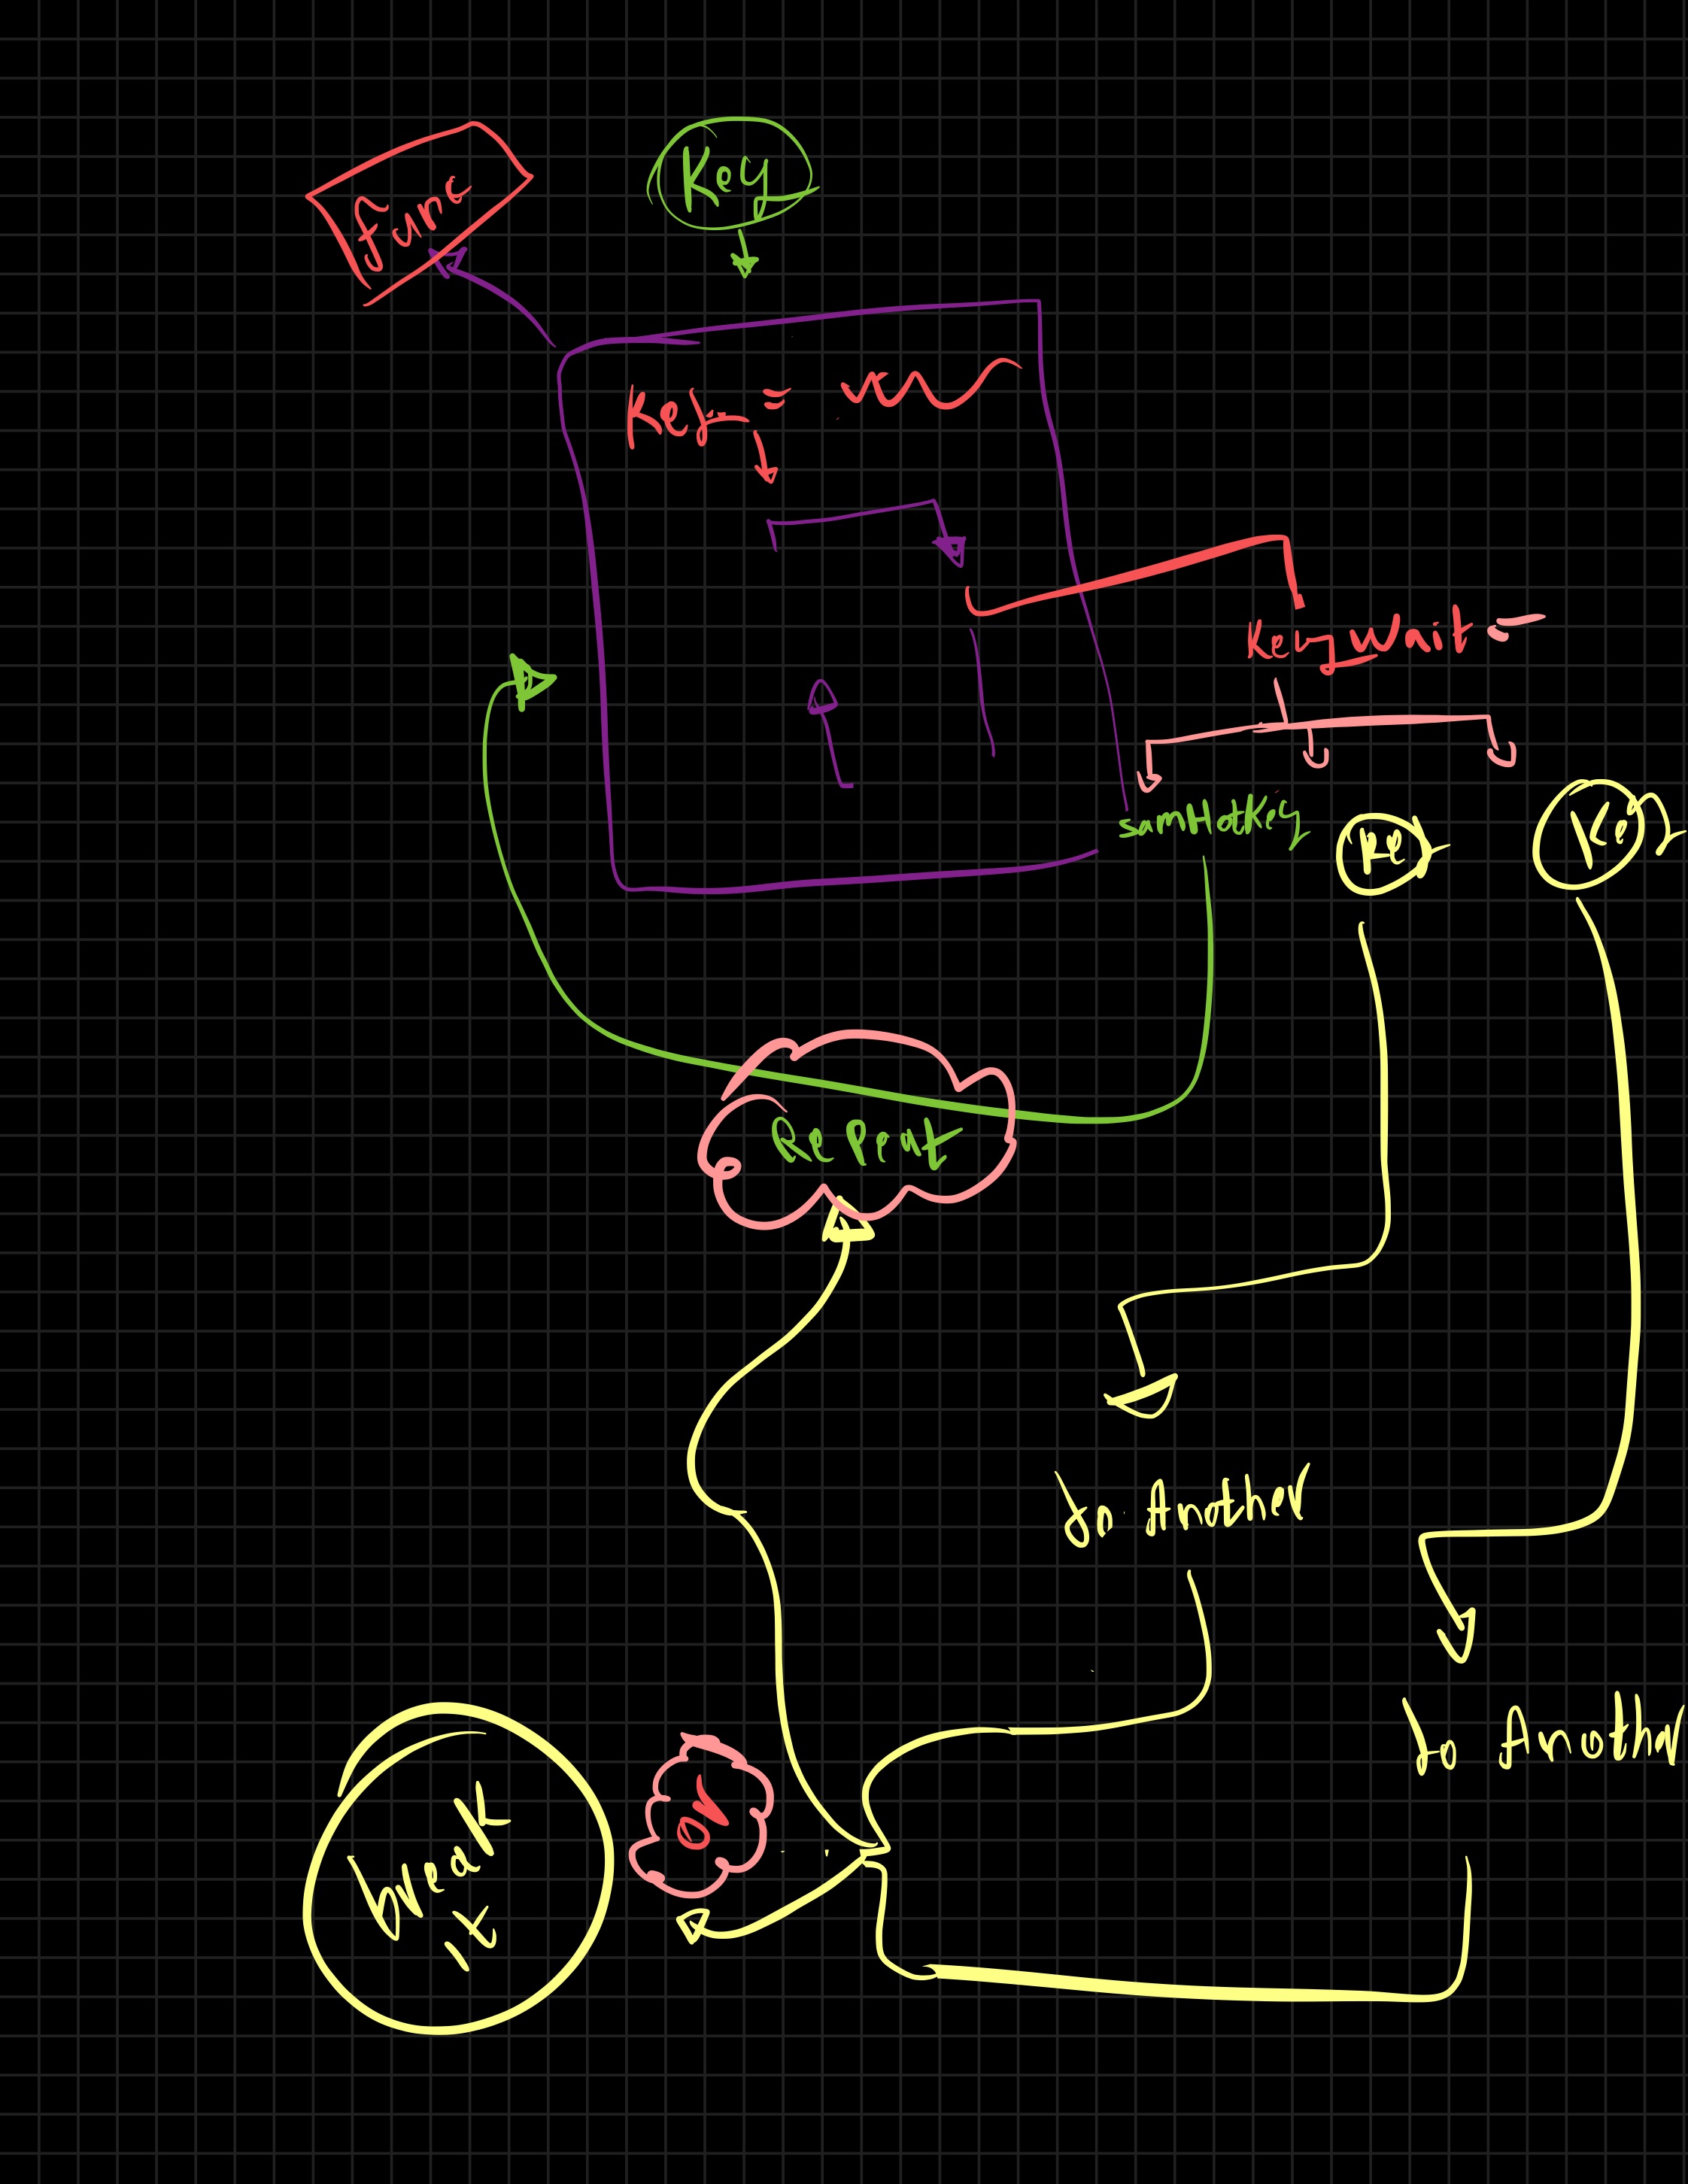 Func
Key
Key =
Key Wait =
samHotKey
Key
Key
Repeat
do Another
do Another
or
break
it